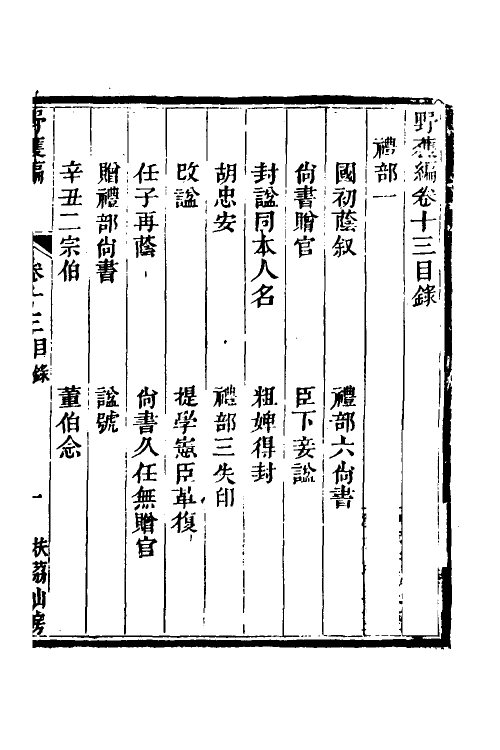 野獲編卷十三目錄
禮部一
國初蔭叙　禮部六尙書
尙書贈官　臣下妾諡
封諡同本人名　粗婢得封
胡忠安　禮部三失印
改諡　提學憲臣革復
任子再蔭　尙書久任無贈官
贈禮部尙書　諡號
辛丑二宗伯　董伯念
野獲編　卷十三目錄　一　扶荔山房